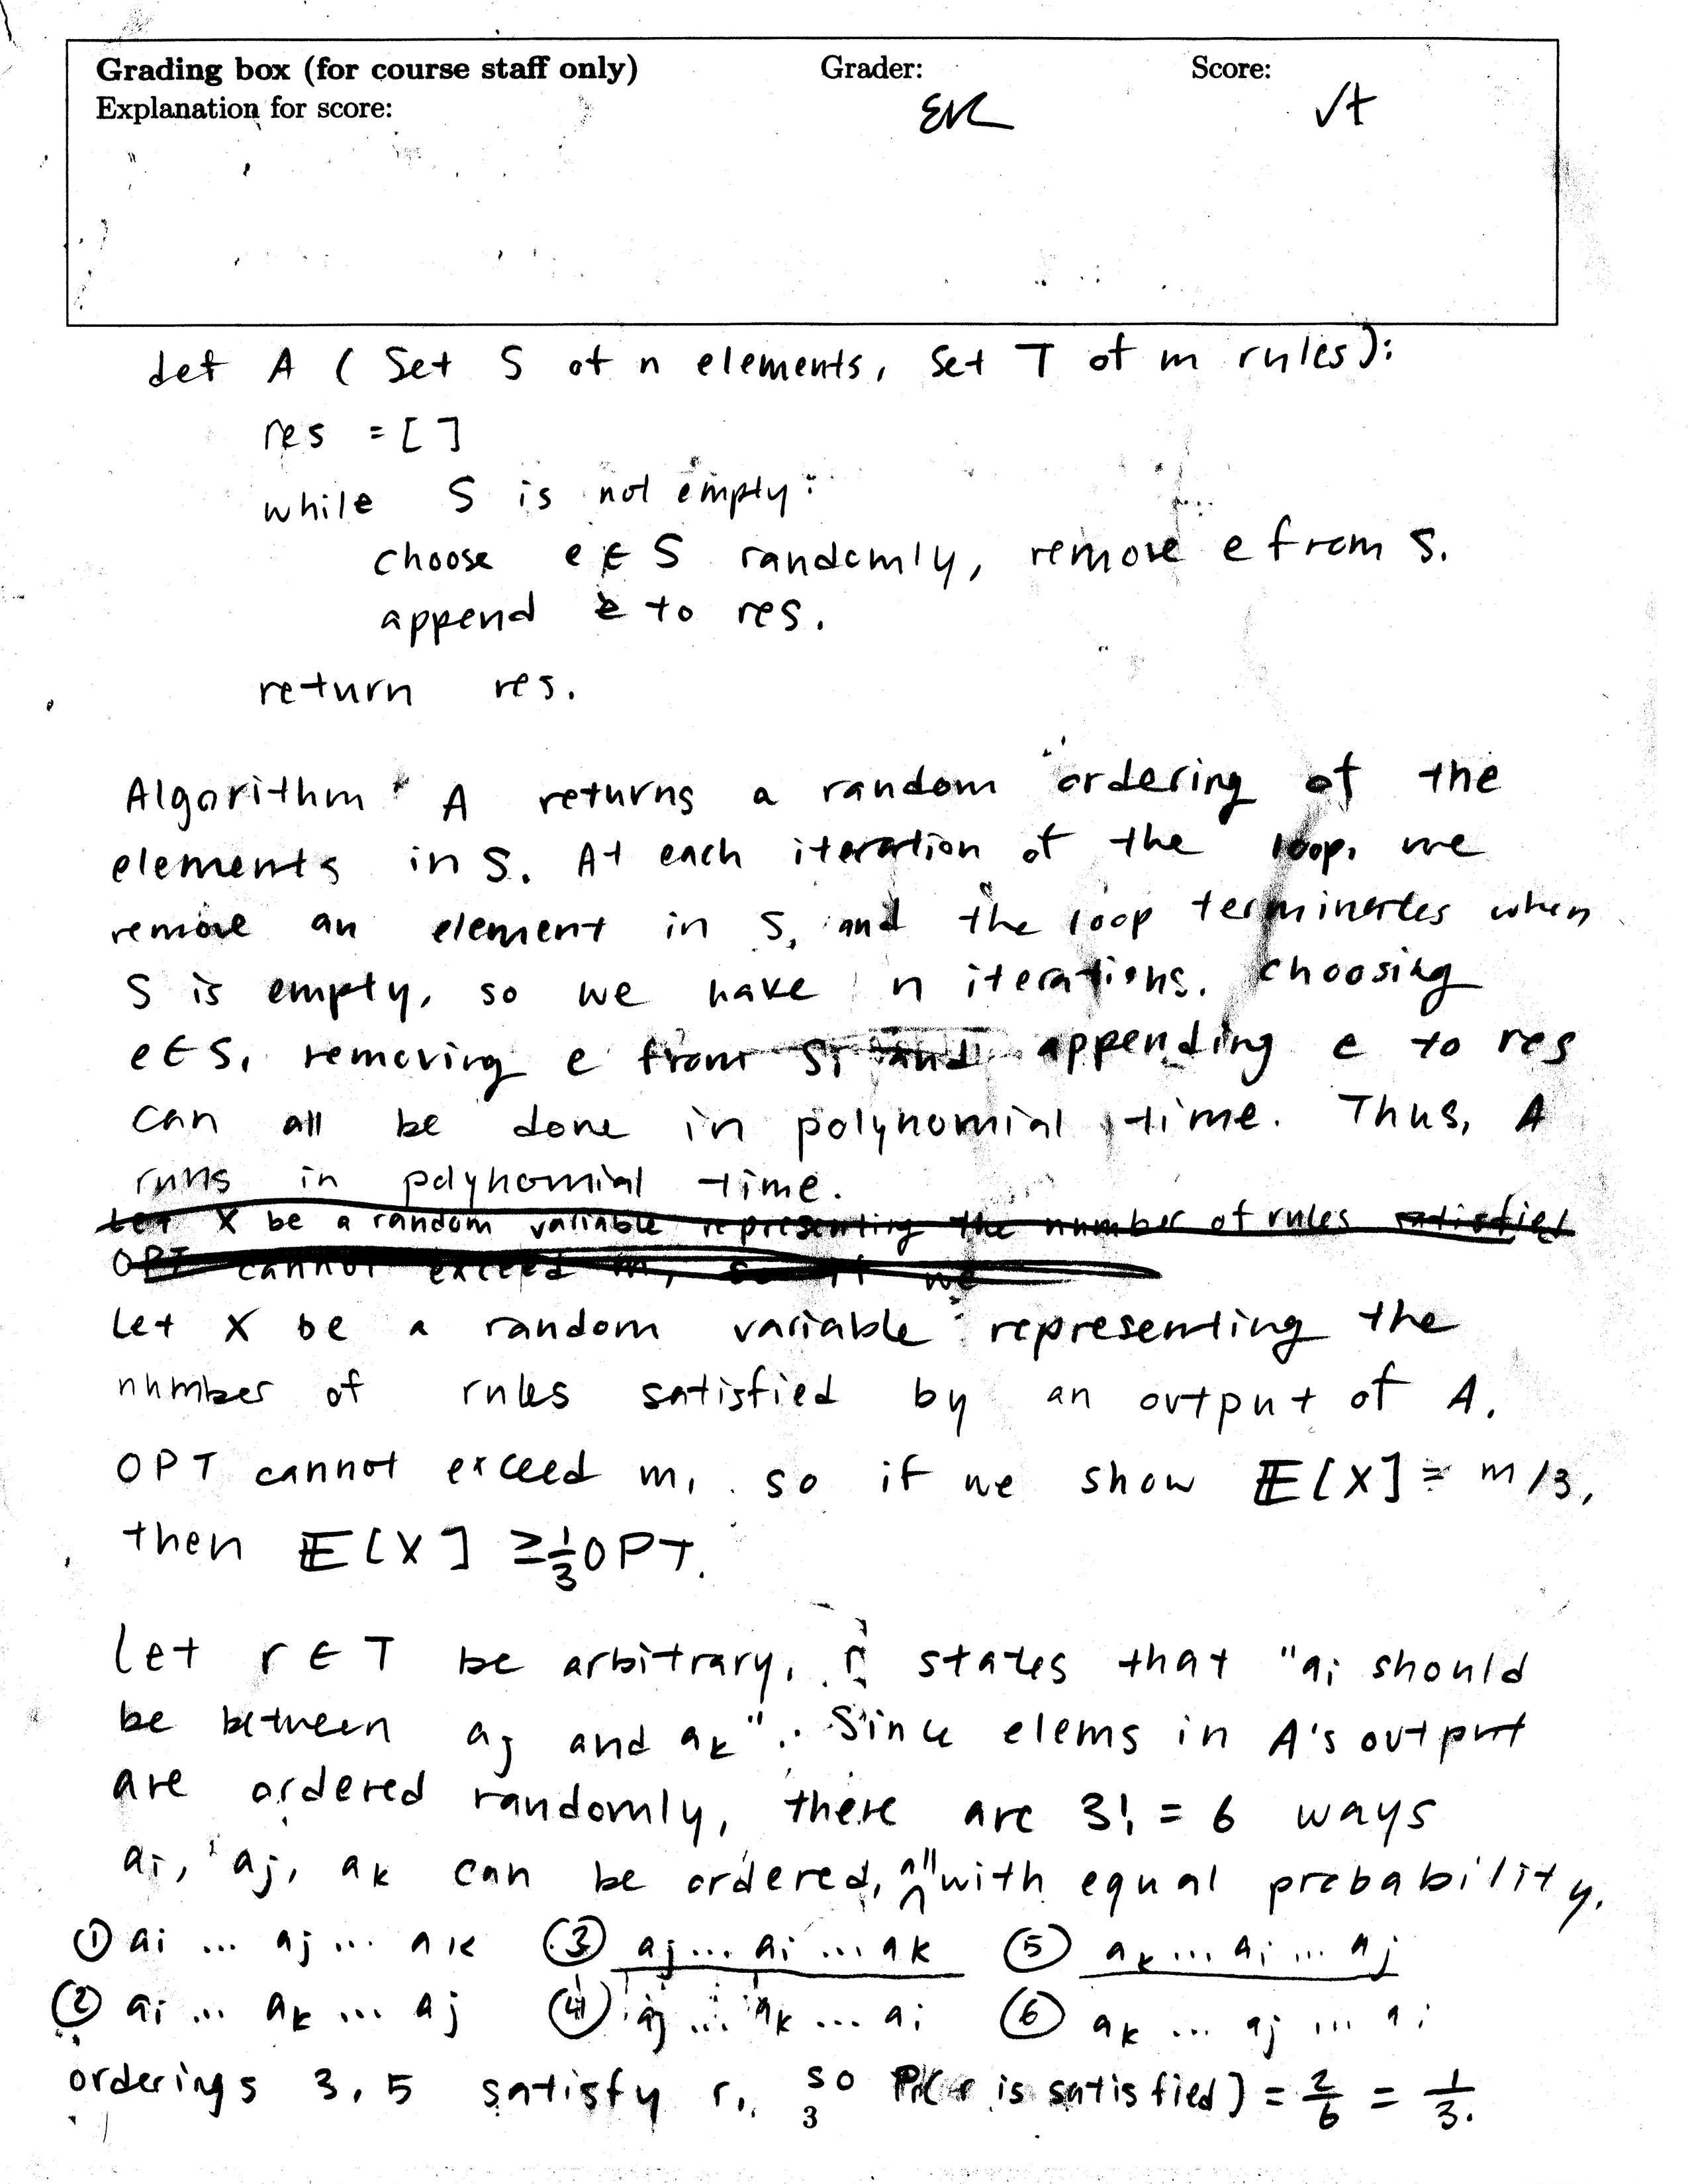 Grading box (for course staff only) Grader: Score:
Explanation for score: √+
def A ( Set S of n elements, Set T of m rules):
res = [ ]
while S is not empty:
choose e ∈ S randomly, remove e from S.
append e to res.
return res.
Algorithm A returns a random ordering of the
elements in S. At each iteration of the loop, we
remove an element in S, and the loop terminates when
S is empty, so we have n iterations. Choosing
e ∈ S, removing e from S, and appending e to res
can all be done in polynomial time. Thus, A
runs in polynomial time.
Let X be a random variable representing the number of rules satisfied
OPT cannot exceed m, so if we
Let X be a random variable representing the
number of rules satisfied by an output of A.
OPT cannot exceed m, so if we show 𝔼[X] = m/3,
then 𝔼[X] ≥ 1/3 OPT.
Let r ∈ T be arbitrary. r states that "ai should
be between aj and ak". Since elems in A's output
are ordered randomly, there are 3! = 6 ways
ai, aj, ak can be ordered, all with equal probability.
① ai ... aj ... ak ③ aj ... ai ... ak ⑤ ak ... ai ... aj
② ai ... ak ... aj ④ aj ... ak ... ai ⑥ ak ... aj ... ai
orderings 3, 5 satisfy r, so Pr(r is satisfied) = 2/6 = 1/3.
3